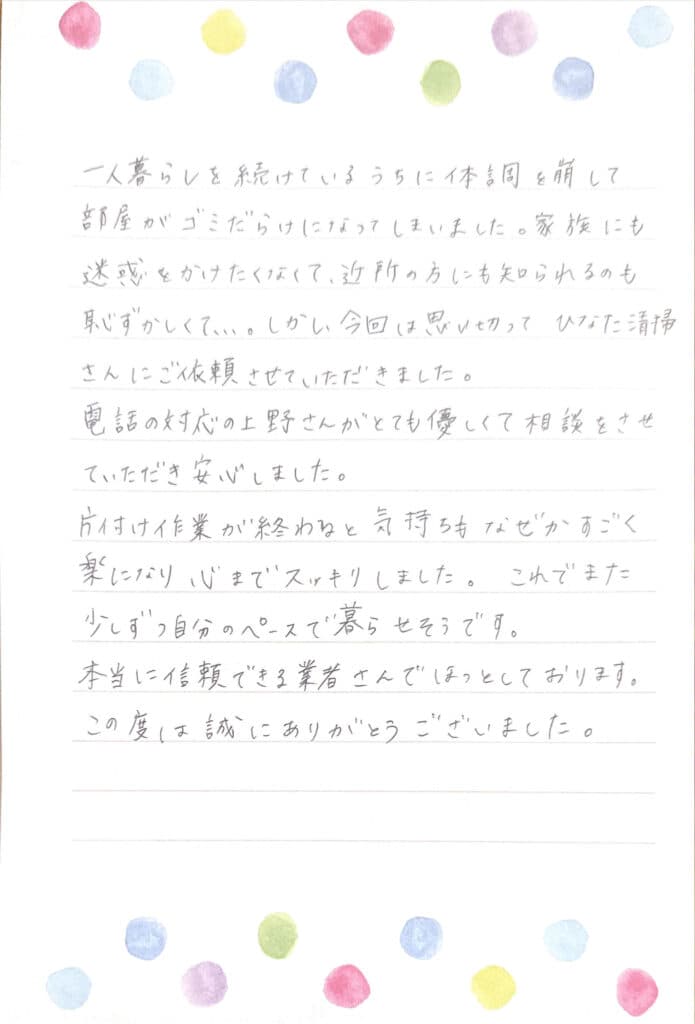 一人暮らしを続けているうちに体調を崩して
部屋がゴミだらけになってしまいました。家族にも
迷惑をかけたくなくて、近所の方にも知られるのも
恥ずかしくて、、、。しかし今回は思い切って ひなた清掃
さんにご依頼させていただきました。
電話の対応の上野さんがとても優しくて相談をさせ
ていただき安心しました。
片付け作業が終わると気持ちもなぜかすごく
楽になり心までスッキリしました。 これでまた
少しずつ自分のペースで暮らせそうです。
本当に信頼できる業者さんでほっとしております。
この度は誠にありがとうございました。